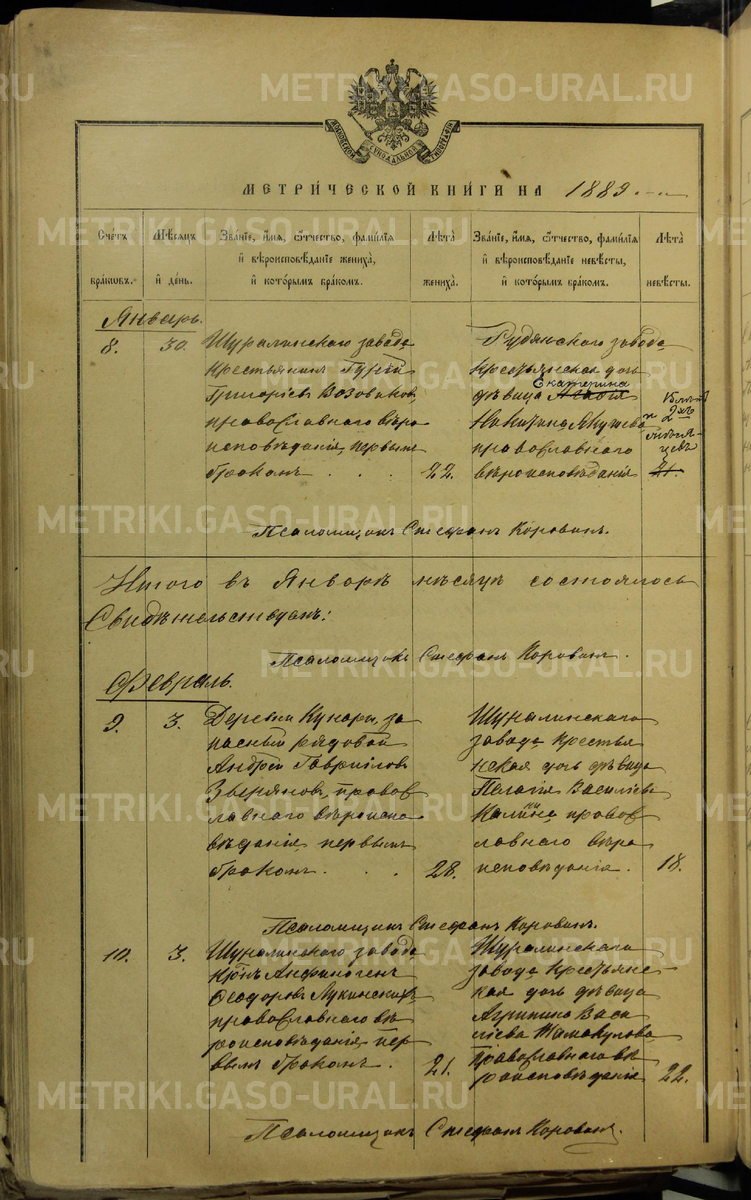 МЕТРИ́ЧЕСКОЙ КНИ́ГИ НА 1889
Сче́тъ бра́ковъ.
Мѣ́сяцъ и҆ де́нь.
Зва́нїе, и҆́мя, ѻ҆́тчество, фамилїя и҆ вѣроисповѣ́данїе жениха̀, и҆ кото́рымъ бра́комъ.
Лѣ́та жениха̀.
Зва́нїе, и҆́мя, ѻ҆́тчество, фамилїя и҆ вѣроисповѣ́данїе невѣ́сты, и҆ кото́рымъ бра́комъ.
Лѣ́та невѣ́сты.
Январь.
8.
30.
Шуралинскаго завода
крестьянинъ Гурій
Григоріевъ Возоваковъ
православнаго вѣро
исповѣданія, первымъ
бракомъ
22.
Рудянскаго завода
крестьянская дочь
Екатерина
дѣвица
Никитина Якушева
православнаго
вѣроисповѣданія
15 лѣтъ
и 2 мѣ
21.
Псаломщикъ Стефанъ Коровинъ.
Итого въ Январѣ мѣсяцѣ состоялось
Свидѣтельствуемъ:
Псаломщикъ Стефанъ Коровинъ.
Февраль.
9.
3.
Деревни Кунары, за
пасный рядовой
Андрей Гавриловъ
Звѣряновъ, правос
лавнаго вѣроиспо
вѣданія, первымъ
бракомъ.
28.
Шуралинскаго
завода крестья
нская дочь дѣвица
Пелагія Василіева
Калинина правос
лавнаго вѣро
исповѣданія.
18.
Псаломщикъ Стефанъ Коровинъ.
10.
3.
Шуралинскаго завода
кр̃нъ Анфиногенъ
Ѳеодоровъ Лукинскихъ
православнаго вѣ
роисповѣданія, пер
вымъ бракомъ.
21.
Шуралинскаго
завода крестьянс
кая дочь дѣвица
Агрипина Васи
ліева Шамакулова
православнаго вѣ
роисповѣданія
22.
Псаломщикъ Стефанъ Коровинъ.
METRIKI.GASO-URAL.RU